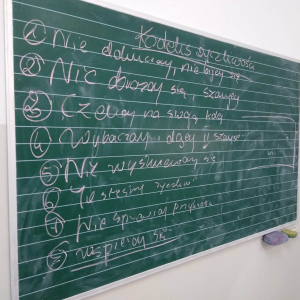 Kodeks życzliwości
① Nie dokuczamy, nie bijemy się
② NIC obrażamy się, szanujemy
③ Czekamy na swoją kolej
④ Wybaczamy, dajemy II szansę
⑤ Nie wyśmiewamy się
⑥ Jesteśmy
⑦ Nie sprawiamy przykrości
⑧ wspieramy się